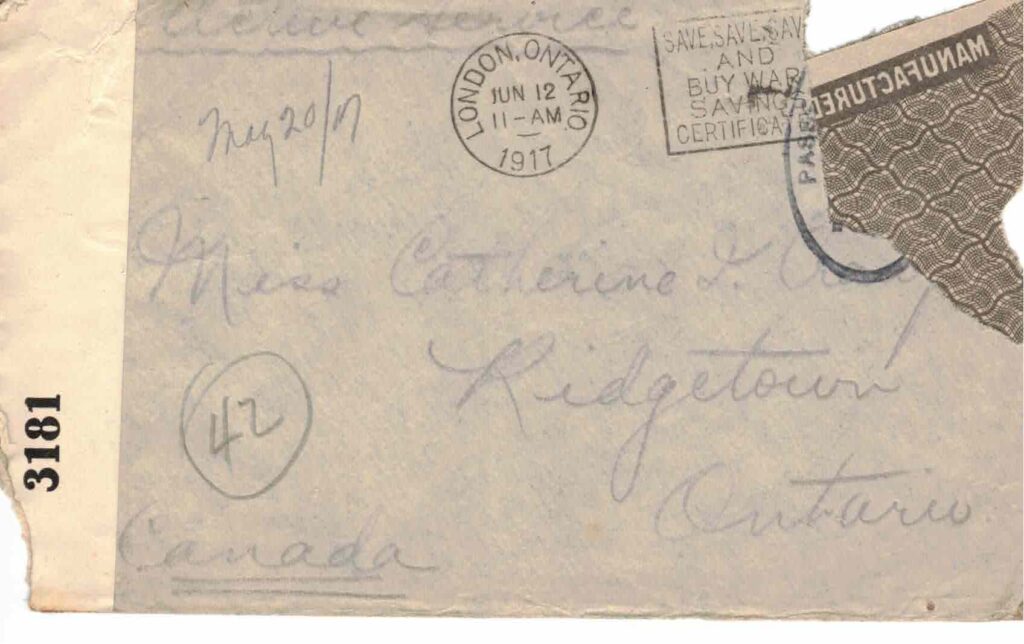 Active Service
LONDON, ONTARIO
JUN 12
11-AM
1917
SAVE, SAVE, SAV
AND
BUY WAR
SAVING
CERTIFICA
MANUFACTURE
PASSE
May 20/17
Miss Catherine I.
Ridgetown
42
Ontario
Canada
3181